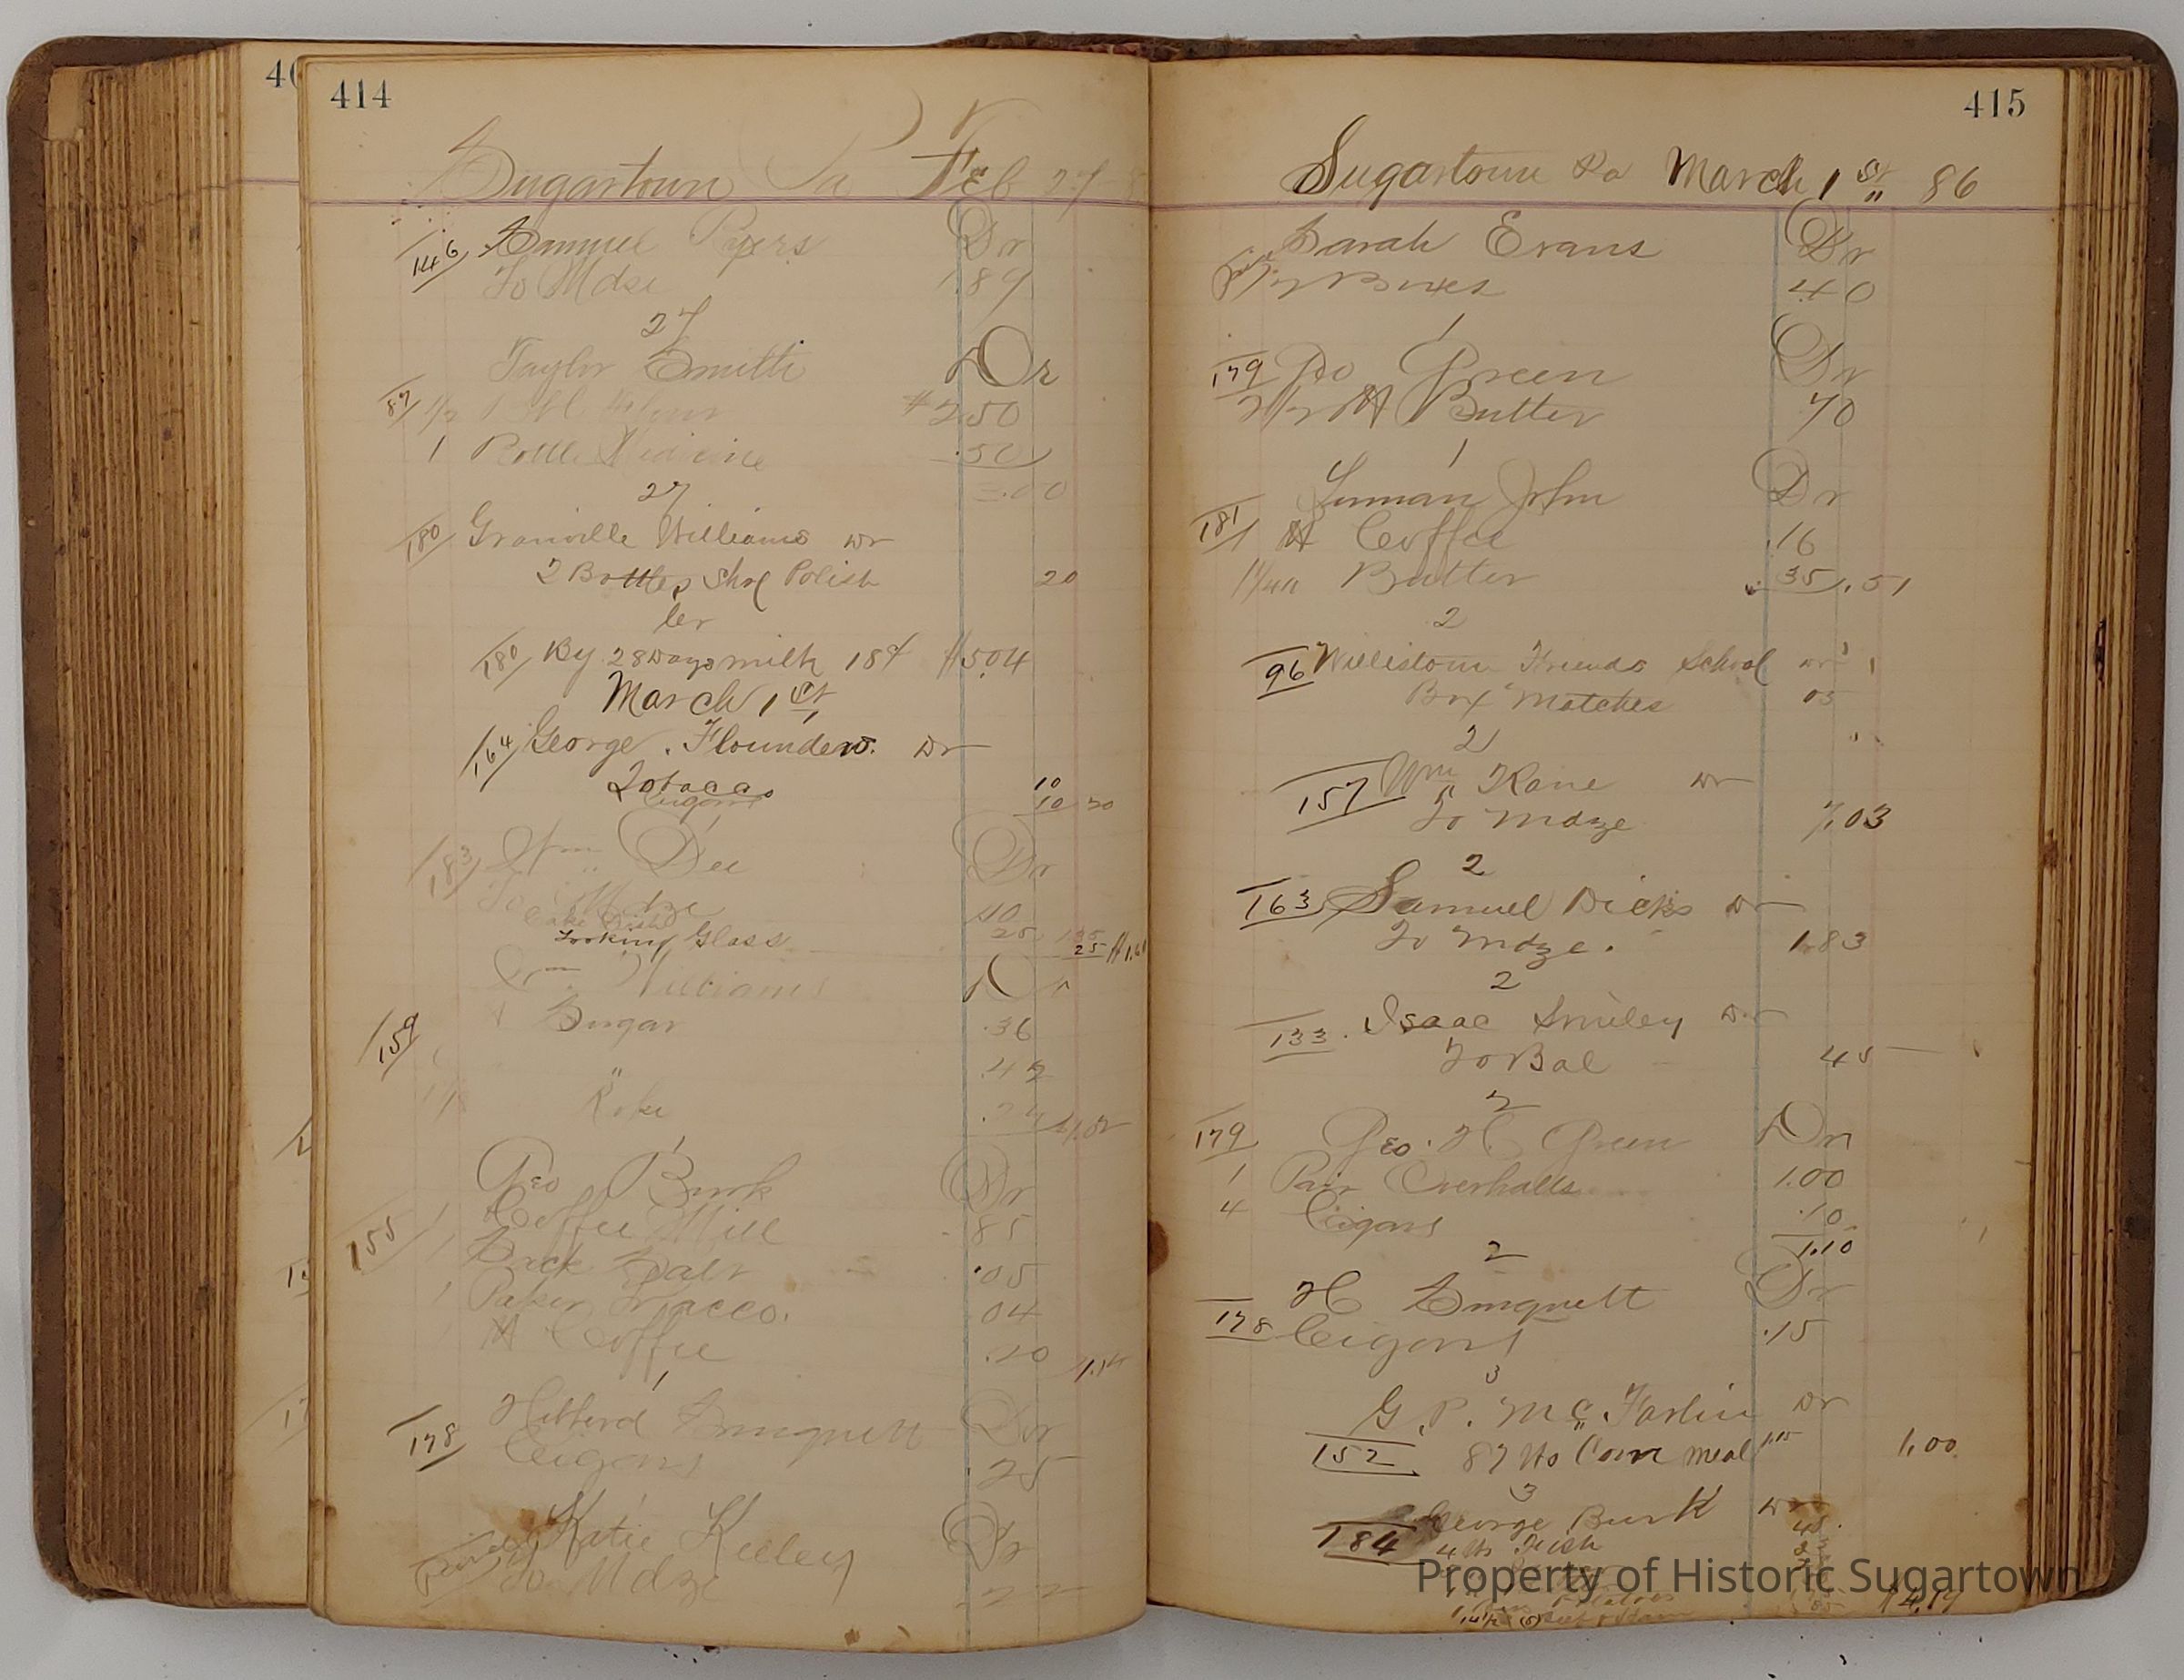 414
Sugartown Pa Feb 27
146 Samuel Pyers Dr
To Mdse 1.89
27
Taylor Smith Dr
87 1/2 $2.50
1 Bottle .50
3.00
27
180 Granville Williams Dr
2 Bottles Shoe Polish 20
Cr
180 By 28 Days milk 184 $5.04
March 1st
164 George Flounders Dr
Tobacco 10
Cigars 10 20
183 Wm Dee Dr
To Mdse
Looking Glass 25
Wm Williams Dr
Sugar .36
159
" .42
1
Geo Burk Dr
155 1 Coffee Mill 85
1 Sack Salt .05
1 Paper Tobacco. 04
Coffee
1
Hibberd Dr
178 Cigars .25
1
Katie Keeley Dr
Paid To Mdze 22
415
Sugartown Pa March 1st 86
Sarah Evans Dr
Paid 40
1
179 Do Green Dr
2 1/2 lb Butter 70
1
Luman John Dr
181 1 lb Coffee .16
Butter 35 .51
2
96 Willistown Friends School Dr
Box Matches 05
2
157 Wm Kane Dr
To Mdze 7.03
2
163 Samuel Dicks Dr
To Mdze. 1.83
2
133. Isaac Smiley Dr
To Bal 45
2
179 Geo. H Green Dr
1 Pair Overhalls 1.00
4 Cigars .10
1.10
2
H Dr
178 Cigars .15
3
G. P. McFarlin Dr
152 87 lbs Corn Meal 1.00
3
George Burk Dr
184 4 lbs Fish
Potatoes
$4.19
Property of Historic Sugartown